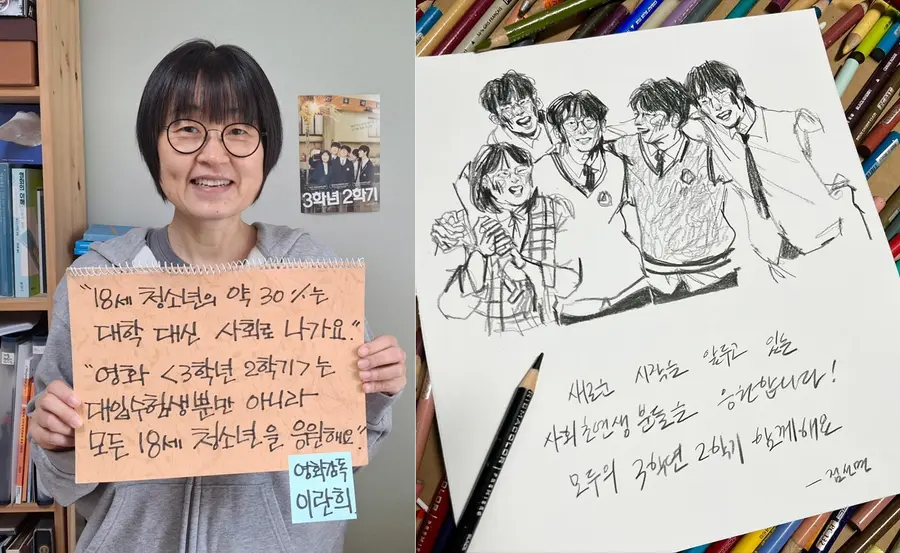 3학년 2학기
"18세 청소년의 약 30%는
대학 대신 사회로 나가요."
"영화 <3학년 2학기>는
대입수험생뿐만 아니라
모든 18세 청소년을 응원해요"
영화감독
이란희
새로운 시작을 앞두고 있는
사회초년생 분들을 응원합니다!
모두의 3학년 2학기 함께해요